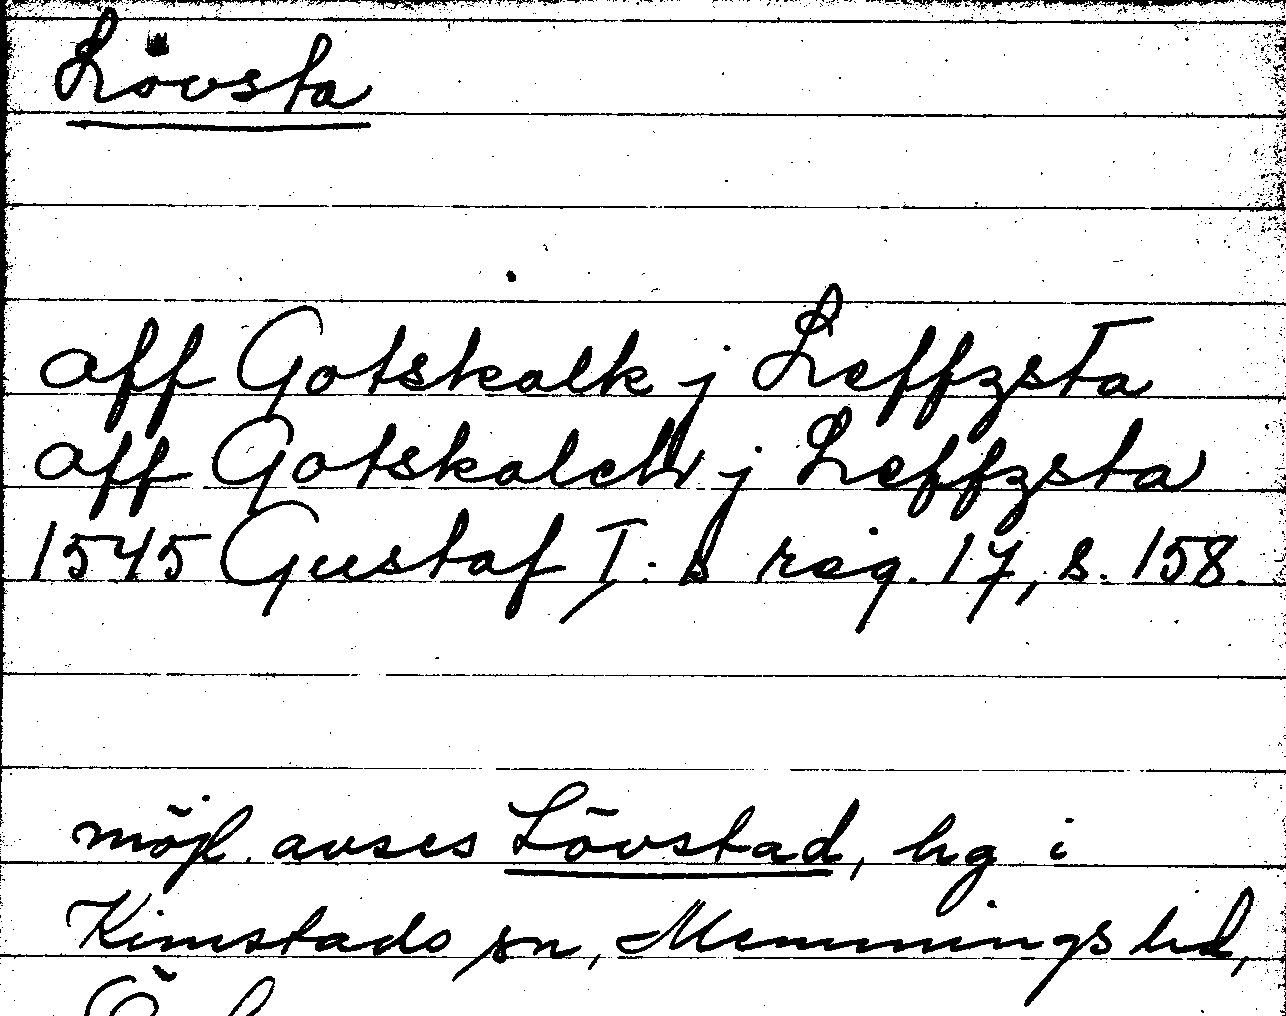 Lövsta
aff Gotskalk j Leffzsta
aff Gotskalck j Leffzsta
1545 Gustaf I:s reg. 17, s. 158.
möjl. avses Lövstad, hg i
Kimstads sn, Memmings hd,